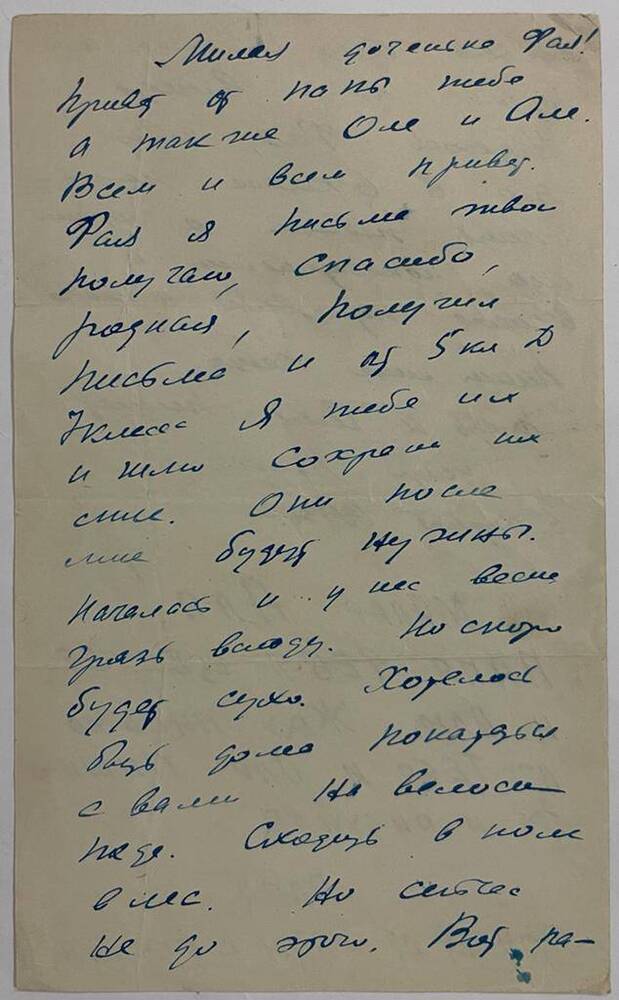 Милая доченька Фая!
Привет от папы тебе
а также Оле и Але.
Всем и всем привет.
Фая я письма твои
получаю, спасибо,
родная, получил
письма и от 5 кл Д
7 класс Я тебе их
и шлю Сохрани их
мне. Они после
мне будут нужны.
Началась и у нас весна
грязь всюду. Но скоро
будет сухо. Хотелось
быть дома покататься
с вами на велоси
педе. Сходить в поле
в лес. Но сейчас
не до этого. Вот ра-